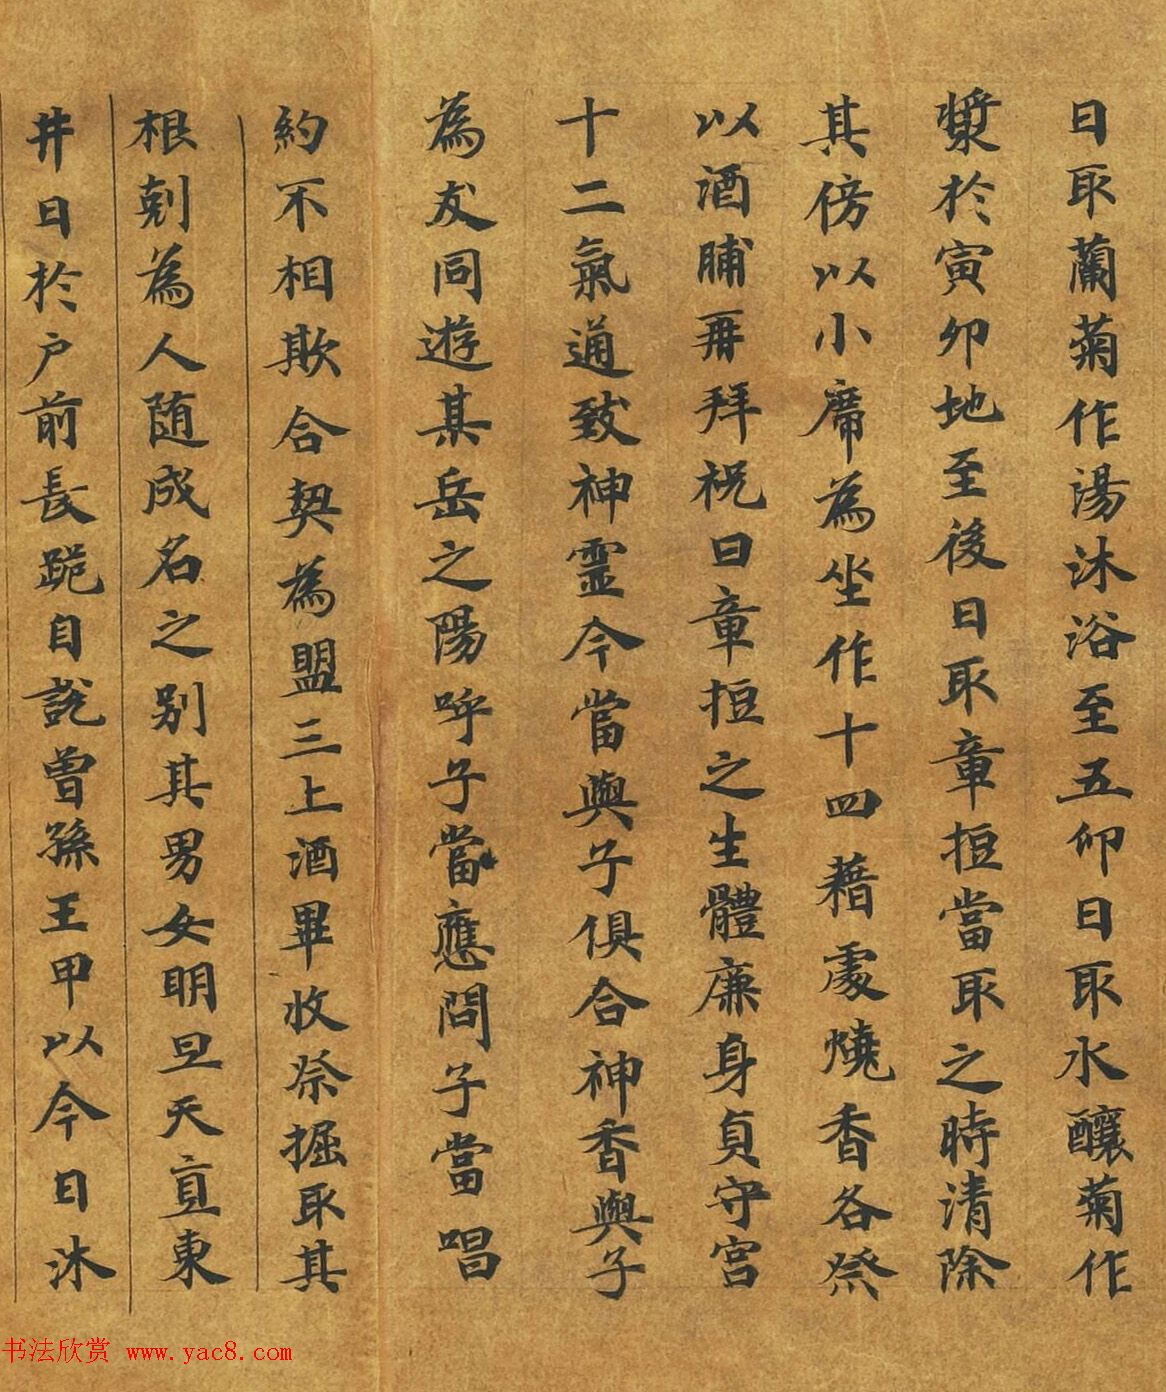 日取蘭菊作湯沐浴至五卯日取水釀菊作
漿於寅卯地至後日取章拒當取之時清除
其傍以小席為坐作十四藉處燒香各祭
以酒脯再拜祝曰章拒之生體廉身貞守宮
十二氣通致神靈今當與子俱合神香與子
為友同遊某岳之陽呼子當應問子當唱
約不相欺合契為盟三上酒畢收祭掘取其
根剋為人随成名之别其男女明旦天亘東
井日於户前長跪自說曾孫王甲以今日沐
书法欣赏 www.yac8.com